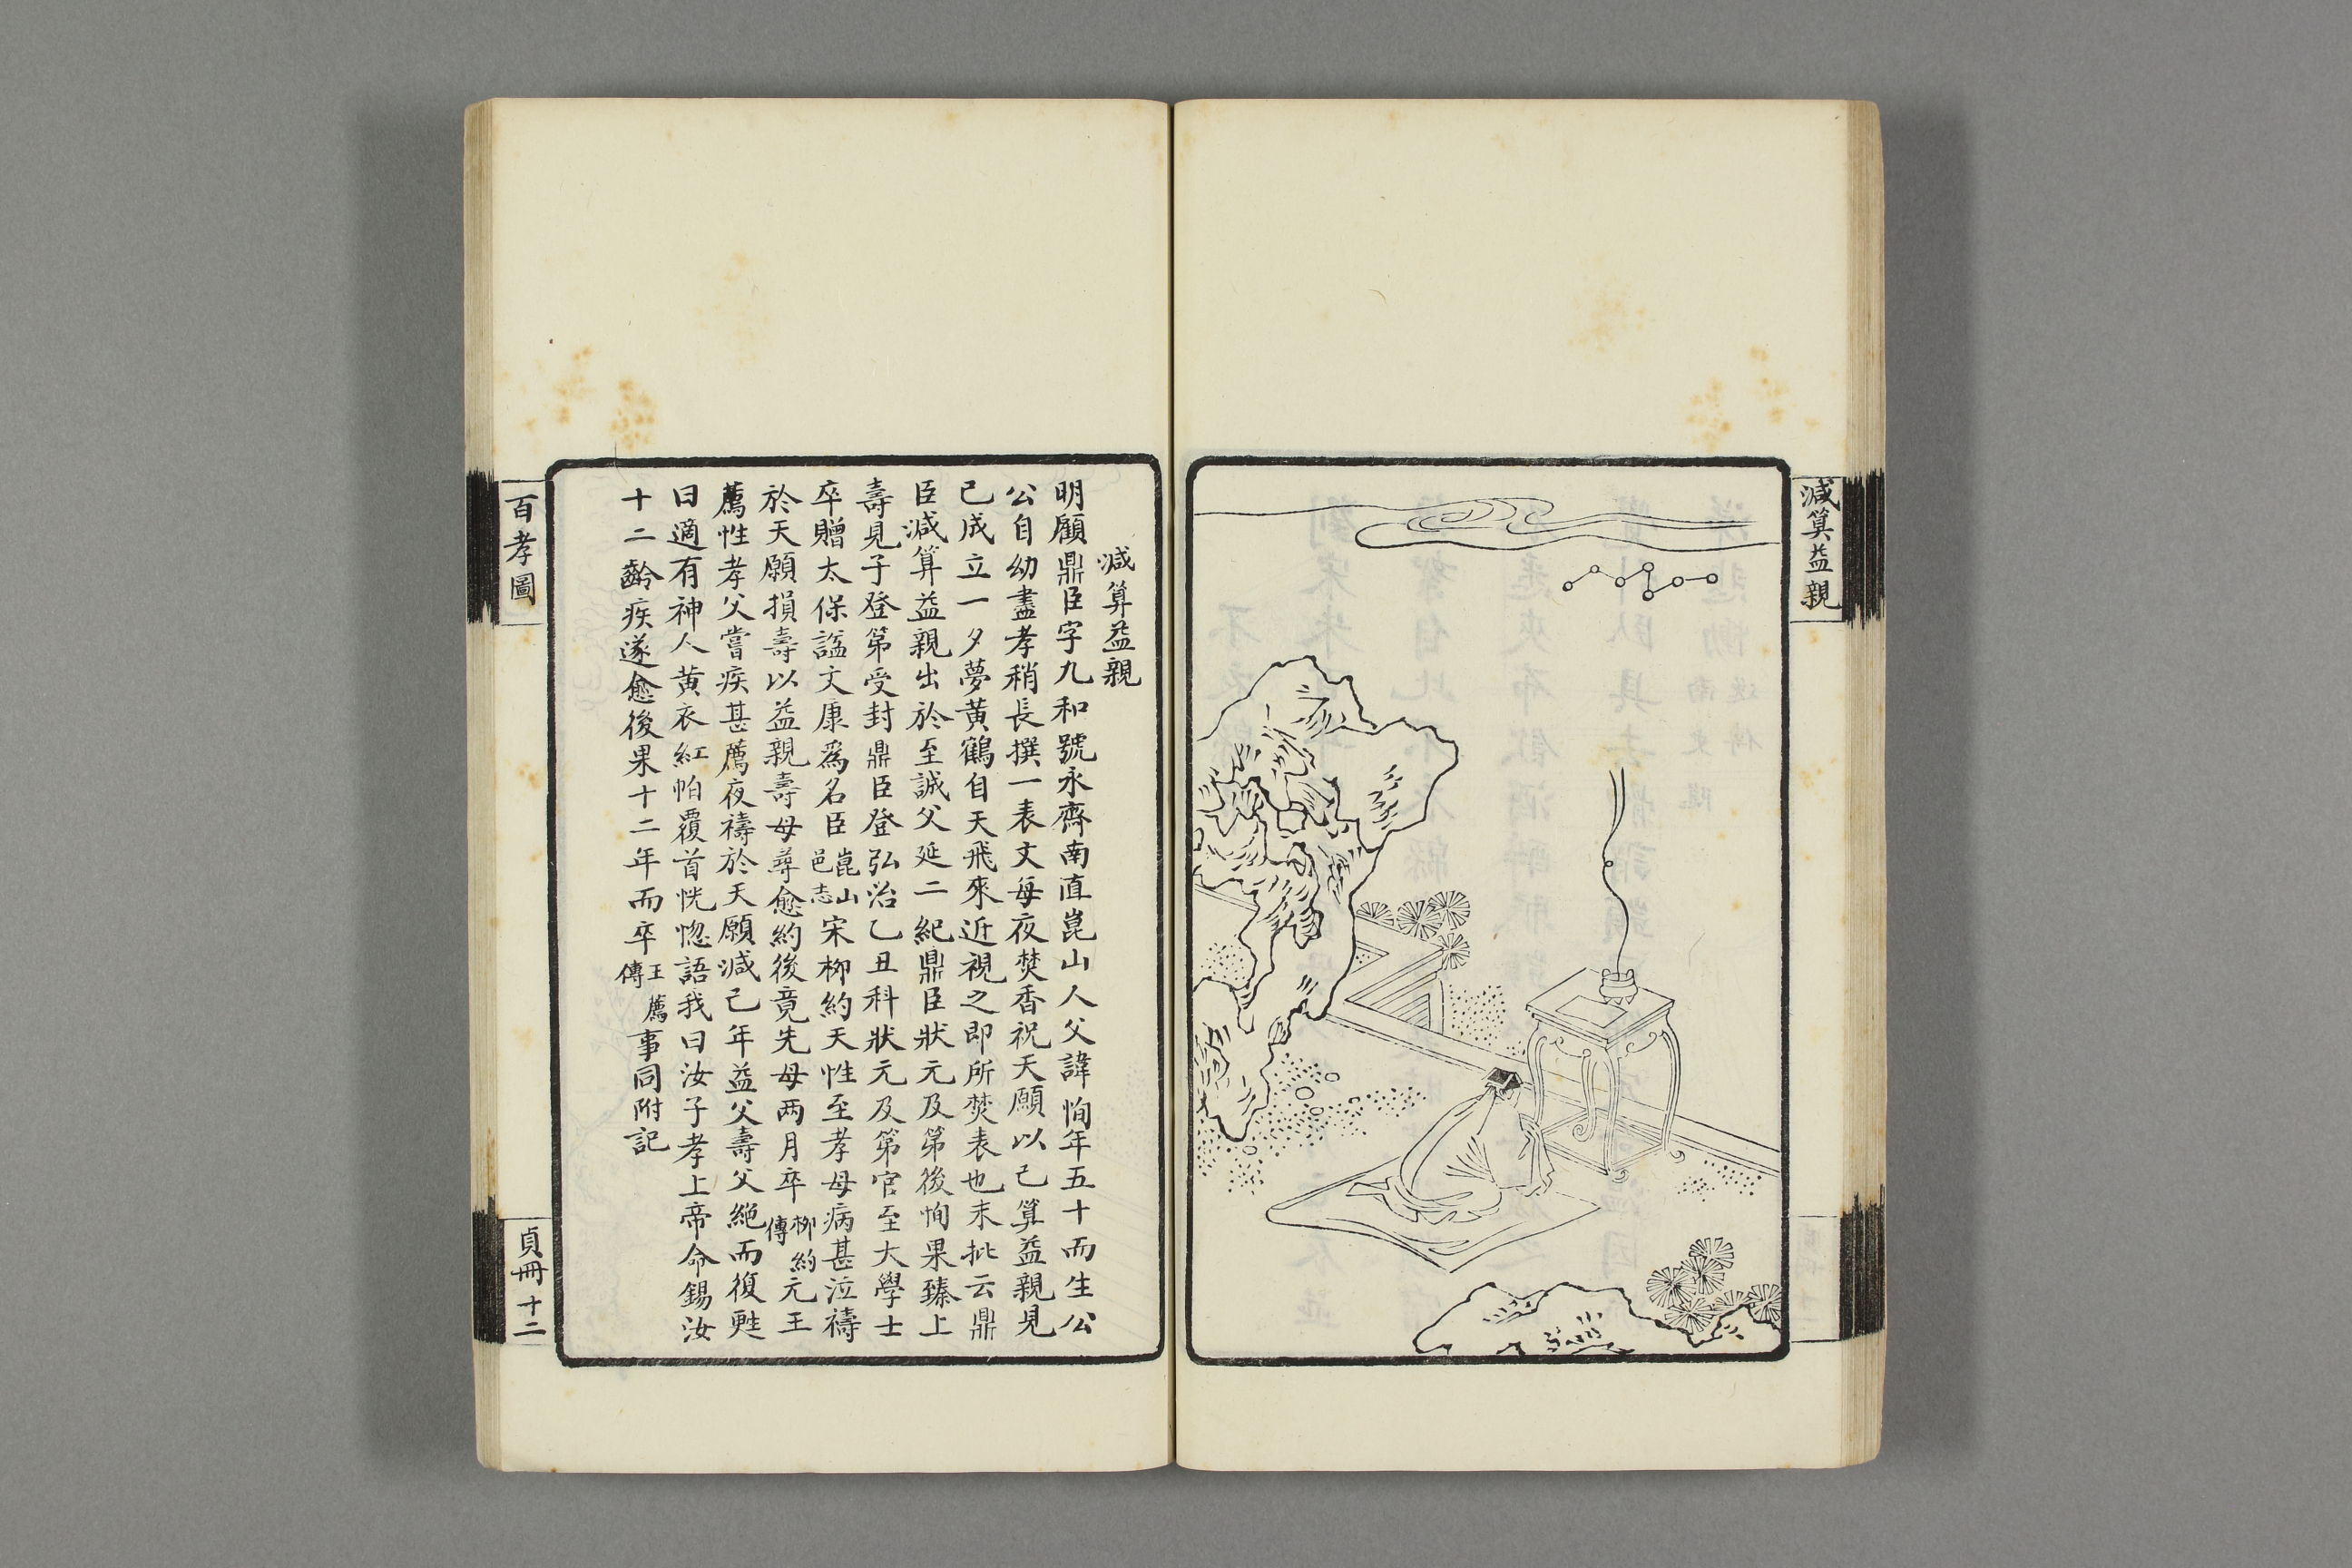 減算益親
減算益親
明顧鼎臣字九和號永齊南直崑山人父諱恂年五十而生公
公自幼盡孝稍長撰一表文每夜焚香祝天願以己算益親見
己成立一夕夢黃鶴自天飛來近視之即所焚表也末批云鼎
臣減算益親出於至誠父延二紀鼎臣狀元及第後恂果臻上
壽見子登第受封鼎臣登弘治乙丑科狀元及第官至大學士
卒贈太保諡文康爲名臣崑山邑志宋柳約天性至孝母病甚泣禱
於天願損壽以益親壽母尋愈約後竟先母两月卒柳約傳元王
薦性孝父嘗疾甚薦夜禱於天願減己年益父壽父絶而復甦
曰適有神人黃衣紅帕覆首恍惚語我曰汝子孝上帝命錫汝
十二齡疾遂愈後果十二年而卒王薦傳事同附記
百孝圖
貞冊 十二